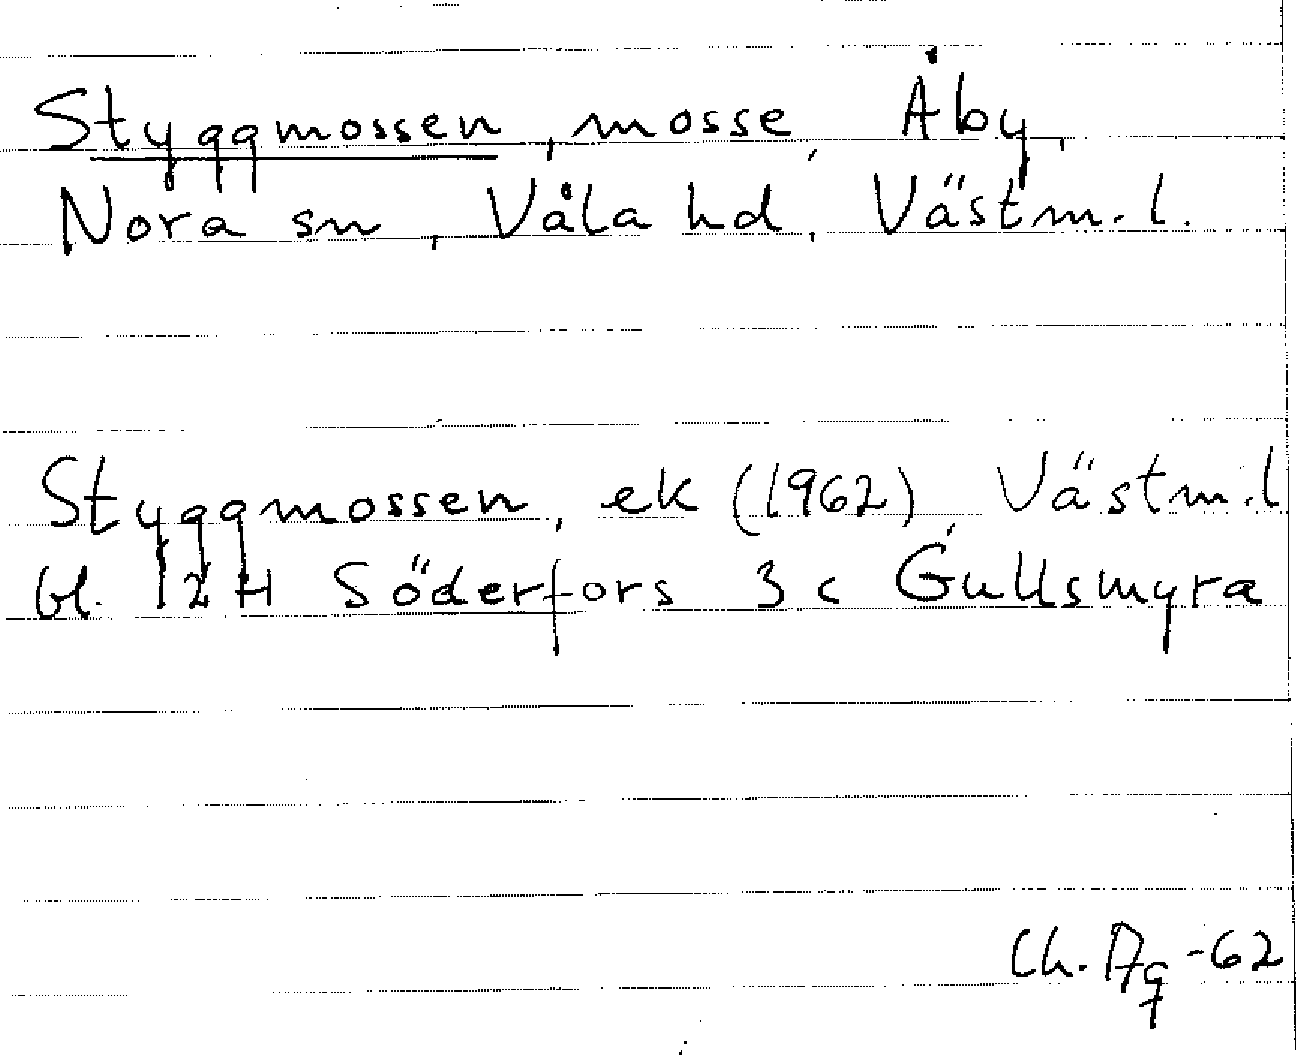 Styggmossen, mosse, Åby,
Nora sn, Våla hd, Västm.l.
Styggmossen, ek (1962), Västm.l
bl. 12H Söderfors 3 c Gullsmyra
Ch. Ag -62